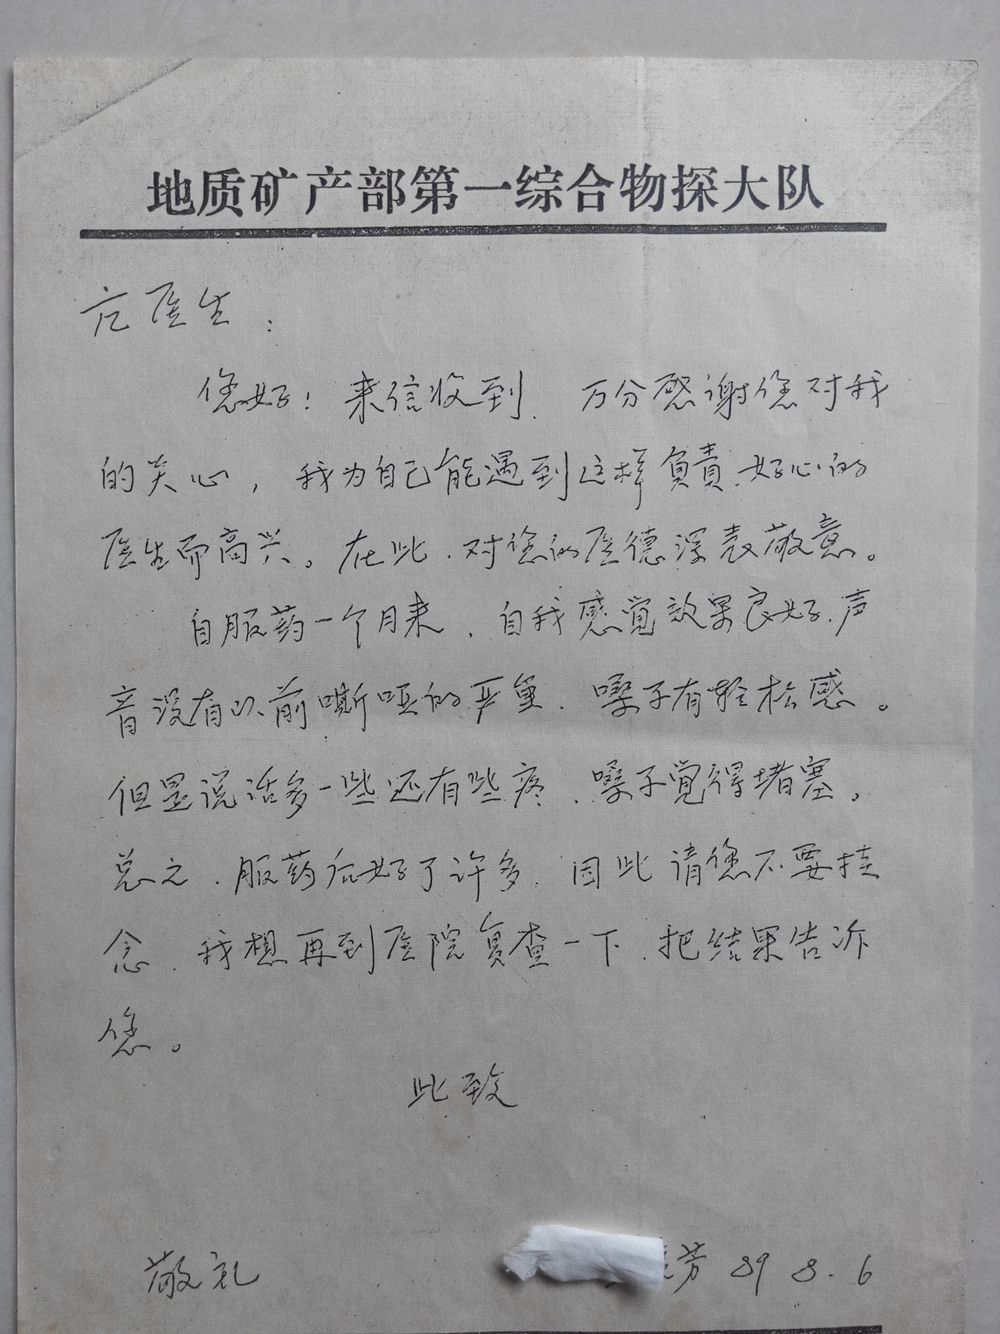 地质矿产部第一综合物探大队
危医生：
您好！来信收到，万分感谢您对我
的关心，我为自己能遇到这样負責、好心的
医生而高兴。在此，对您的医德深表敬意。
自服药一个月来，自我感觉效果良好，声
音没有以前嘶哑的严重，嗓子有轻松感。
但是说话多一些还有些疼，嗓子觉得堵塞。
总之，服药后好了许多，因此请您不要挂
念，我想再到医院复查一下，把结果告诉
您。
此致
敬礼
芳 89 8.6